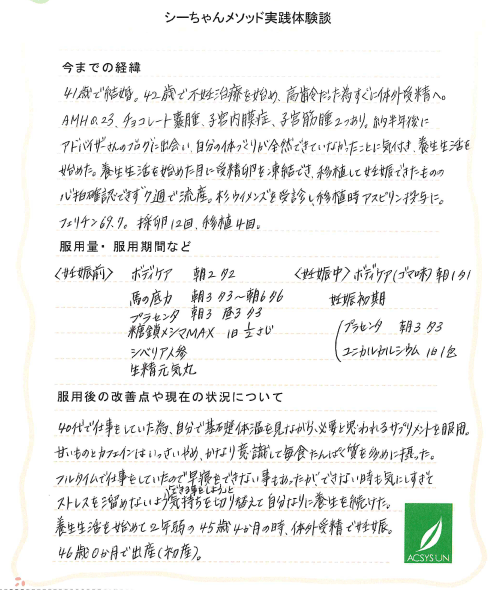 シーちゃんメソッド実践体験談
今までの経緯
41歳で結婚。42歳で不妊治療を始め、高齢だった為すぐに体外受精へ。
AMH0.23、チョコレート嚢腫、子宮内膜症、子宮筋腫2つあり。約半年後に
アドバイザーさんのブログに出会い、自分の体づくりが全然できていなかったことに気付き、養生生活を
始めた。養生生活を始めた月に受精卵を凍結でき、移植して妊娠できたものの
心拍確認できず7週で流産。杉ウイメンズを受診し移植時アスピリン投与に。
フェリチン69.7。採卵12回、移植4回。
服用量・服用期間など
〈妊娠前〉 ボディケア 朝2夕2 〈妊娠中〉ボディケア(ゴマ味)朝1夕1
馬の底力 朝3夕3〜朝6夕6 妊娠初期
プラセンタ 朝3昼3夕3 プラセンタ 朝3夕3
糖鎖メシマMAX 1日½さじ ユニカルカルシウム 1日1包
シベリア人参
生精元気丸
服用後の改善点や現在の状況について
40代で仕事をしていた為、自分で基礎体温を見ながら、必要と思われるサプリメントを服用。
甘いものとカフェインはいっさいやめ、かなり意識して毎食たんぱく質を多めに摂った。
フルタイムで仕事をしていたので早寝をできない事もあったができない時も気にしすぎて
ストレスを溜めないようできる事をしようと気持ちを切り替えて自分なりに養生を続けた。
養生生活を始めて2年弱の45歳4か月の時、体外受精で妊娠。
46歳0か月で出産(初産)。
ACSYSUN